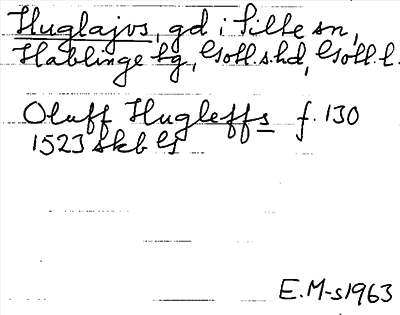 Huglajvs, gd i Silte sn,
Hablinge tg, Gotl.s.hd, Gotl.l.
Oluff Hugleffs f. 130
1523 Skb G
E.M-s 1963